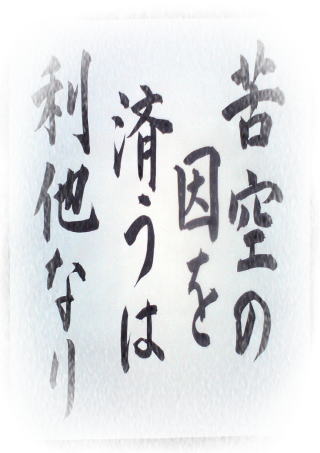 苦空の
因を
済うは
利他なり